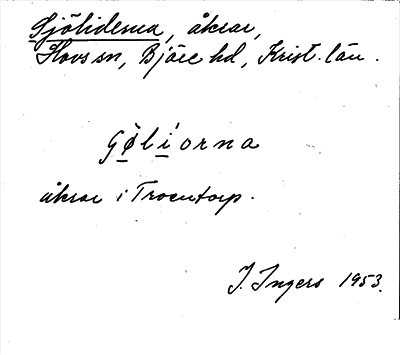 Sjölidema, åkrar,
Hovs sn, Bjäre hd, Krist. län.
Gøliorna
åkrar i Troentorp.
I. Ingers 1953.